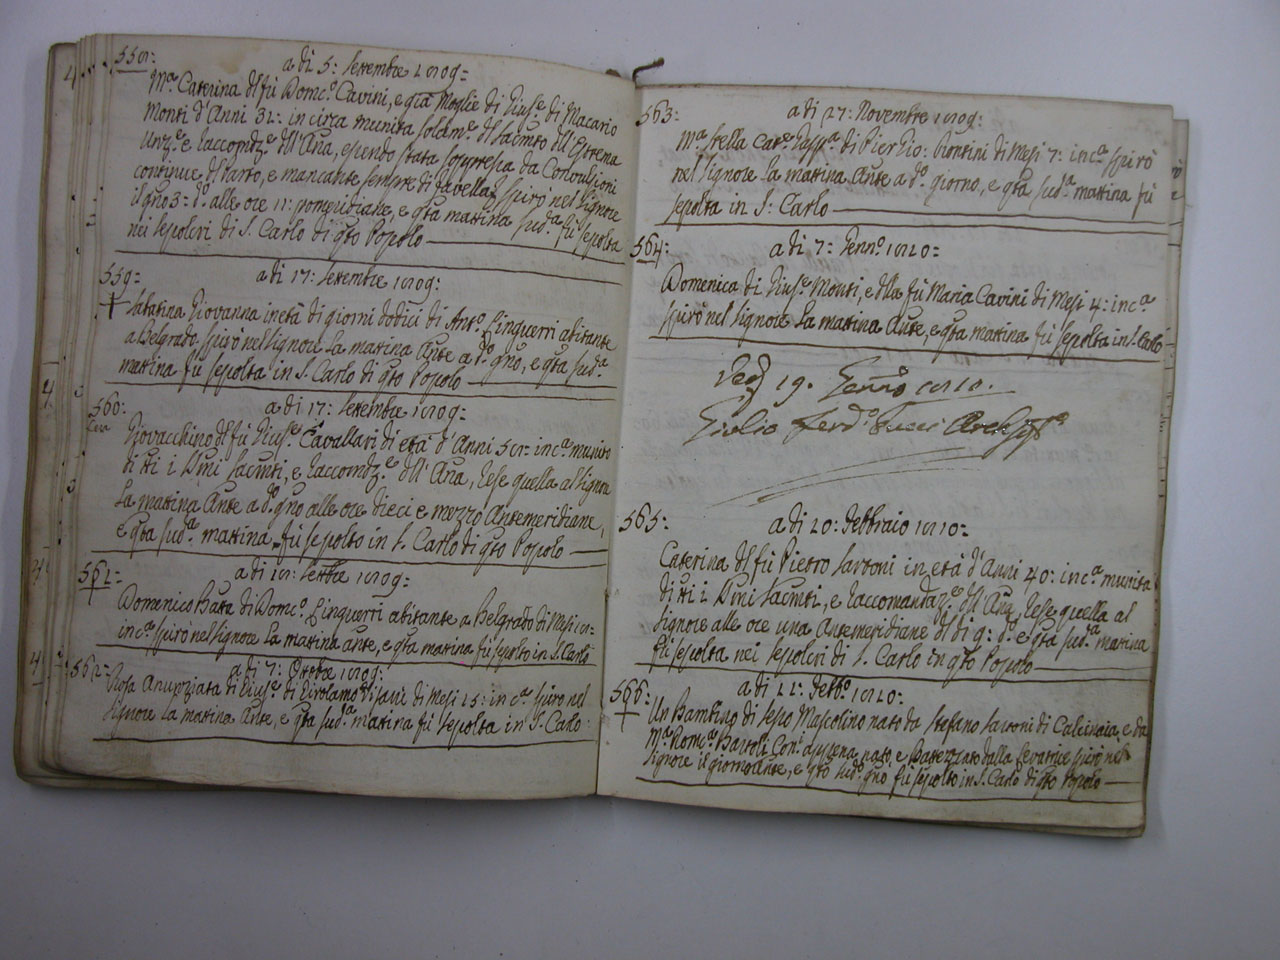 558:
a dì 5: Settembre 1809=
Mª Caterina del fù Domcº Cavini, e già Moglie di Giuse di Macario
Monti d'Anni 32: in circa munita solamte del Sacmto dell'Estrema
Unze e Raccomdze dell'Ana, essendo stata sorpresa da Convulsioni
continue del Parto, e mancante sempre di favella, spirò nel Signore
il gno 3: do alle ore 11: pomeridiane, e qta mattina sudª fù sepolta
nei sepolcri di S. Carlo di qto Popolo
559=
a dì 17: Settembre 1809:
Sabatina Giovanna in età di giorni dodici di Antº Linguerri abitante
a Belgrado spirò nel Signore la mattina Ante a do gno, e qta sudª
mattina fù sepolta in S. Carlo di qto Popolo
560:
a dì 17: Settembre 1809=
Giovacchino del fù Giuse Cavallari di età d'Anni 58= incª munito
di tti i Smi Sacmti, e Raccomdze dell'Ana, rese quella al Signore
la mattina Ante a do gno alle ore dieci e mezzo Antemeridiane,
e qta sudª mattina fù sepolto in S. Carlo di qto Popolo
561=
a dì 18: Settbre 1809=
Domenico Bata di Domcº Linguerri abitante a Belgrado di Mesi 18=
incª spirò nel Signore la mattina ante, e qta mattina fù sepolto in S. Carlo
562=
a dì 7: Ottbre 1809:
Rosa Anunziata di Giuse di Girolamo di Savi di Mesi 15: incª spirò nel
Signore la mattina Ante, e qta sudª mattina fù sepolta in S. Carlo
563:
a dì 27: Novembre 1809:
Mª Stella Catª di Pier Gio: Bontini di Mesi 7: incª spirò
nel Signore la mattina Ante a do giorno, e qta sudª mattina fù
sepolta in S: Carlo
564:
a dì 7: Gennº 1810:
Domenica di Giuse Monti, e della fù Maria Cavini di Mesi 4: incª
spirò nel Signore la mattina Ante, e qta mattina fù sepolta in S. Carlo
19. Gennro 1810.
Giulio Ferdº Tucci
565:
a dì 20: Febbraio 1810:
Caterina del fù Pietro Sartoni in età d'Anni 40: incª munita
di tti i Smi Sacmti, e Raccomandaze dell'Ana rese quella al
Signore alle ore una Antemeridiane del dì g: do: e qta sudª mattina
fù sepolta nei sepolcri di S. Carlo in qto Popolo
566:
a dì 22: Febbº 1810:
Un Bambino di sesso Mascolino nato da Stefano Sartoni di Calcinaia, e da
Mª Domcª Bartoli Coni appena nato, e Battezzato dalla levatrice spirò nel
Signore il giorno Ante, e qto sudº gno fù sepolto in S. Carlo di qto Popolo